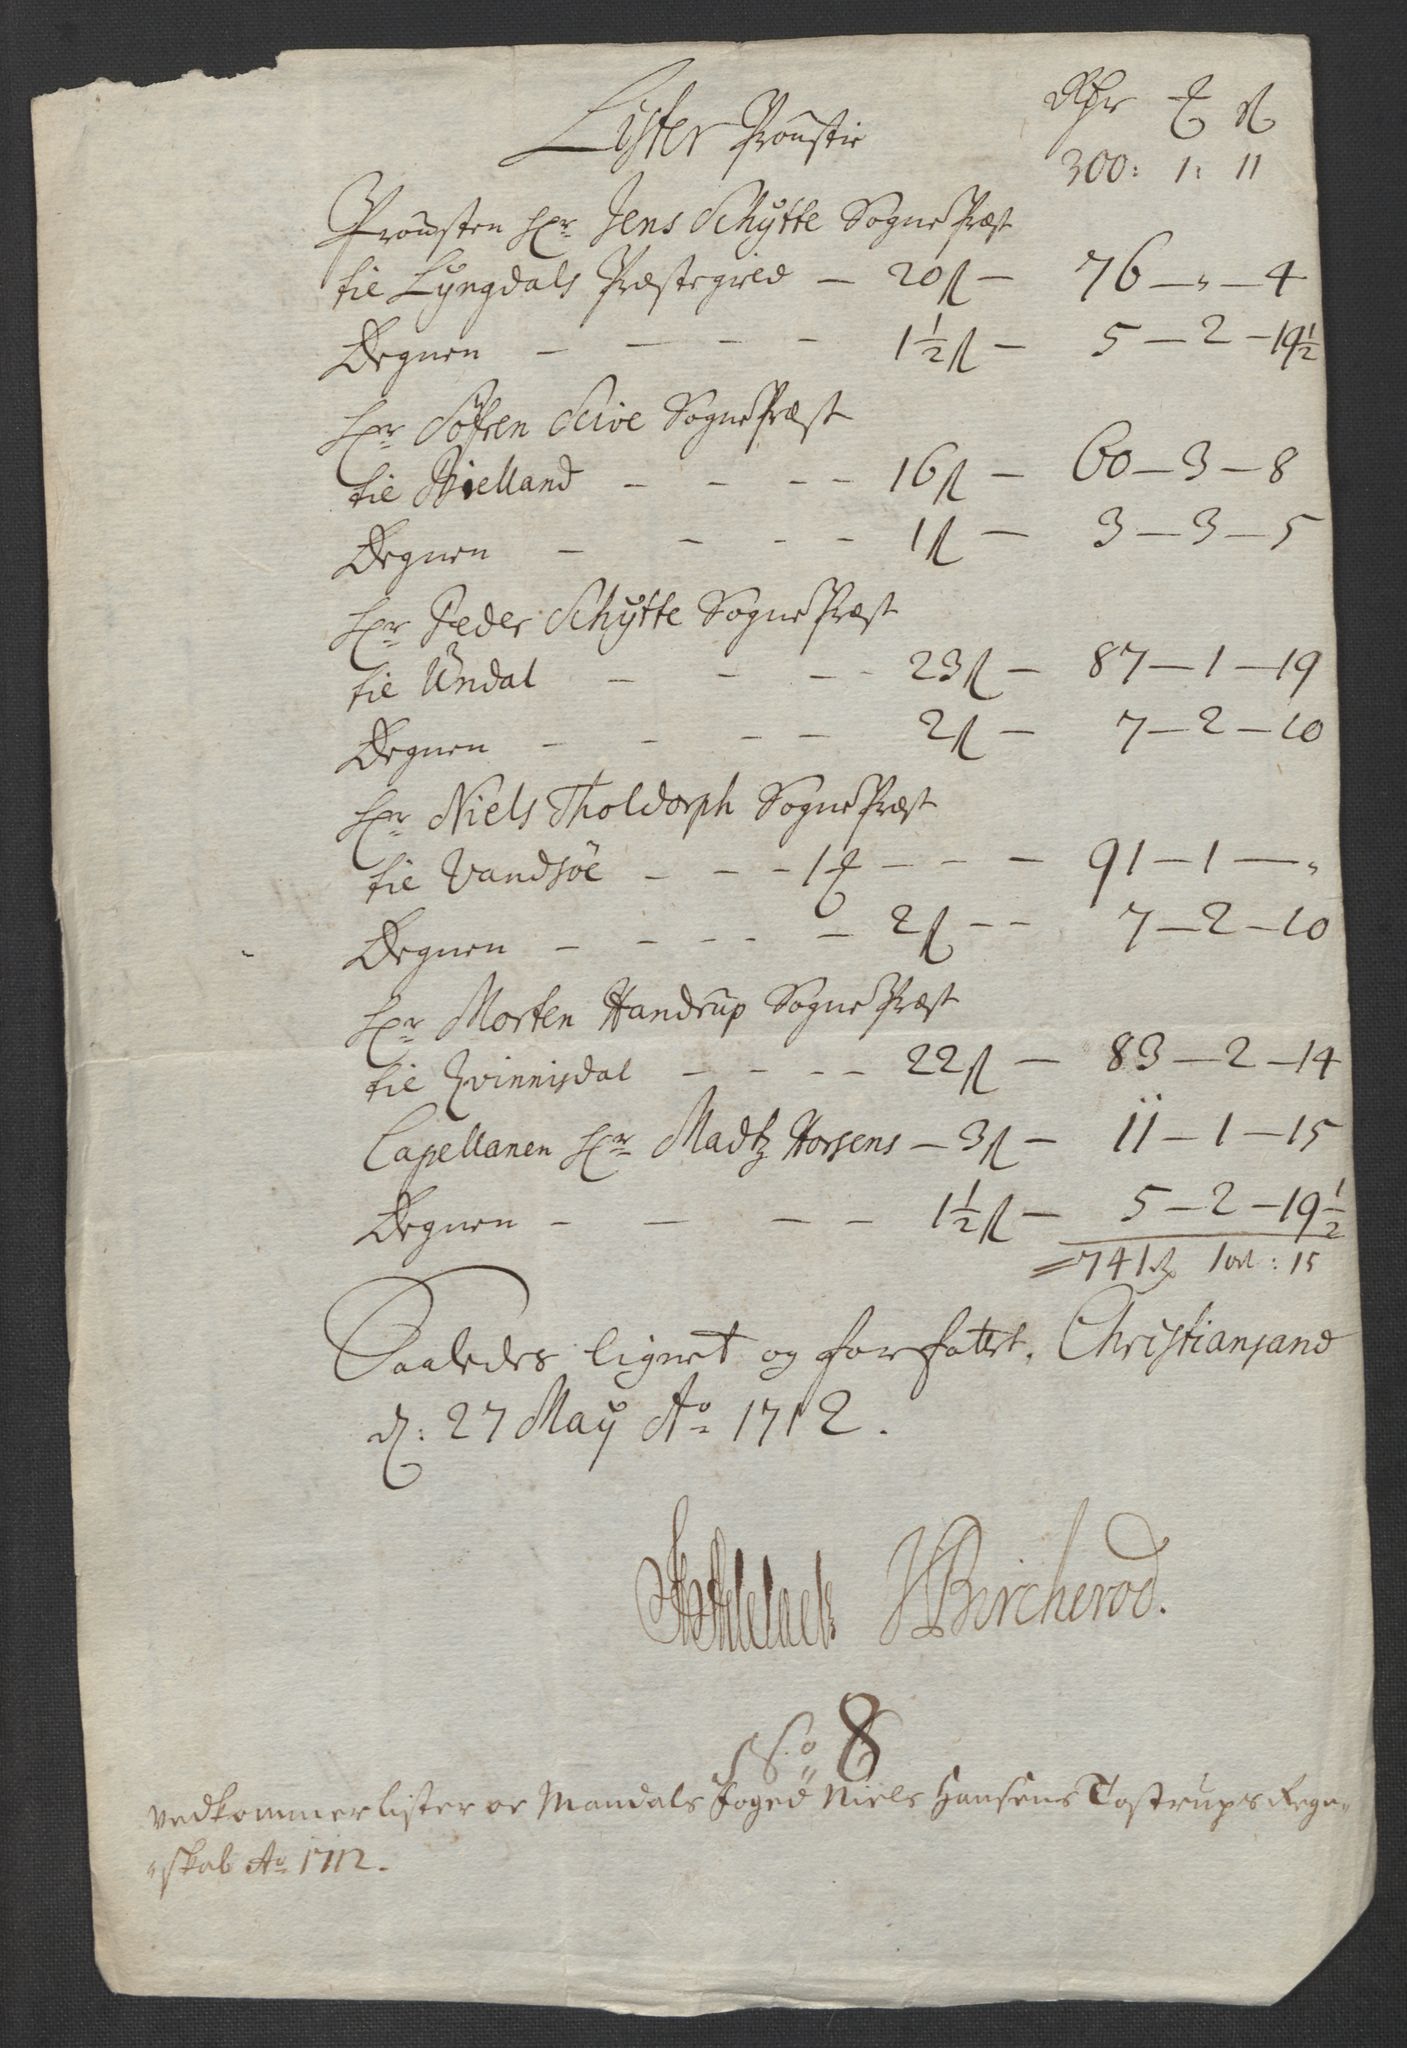 Lister Proustie Rdr ort ß
300: 1: 11
Prousten Hr Jens Schytte Sogne Præst
til Lyngdals Præstegield — 20ß — 76 — „ — 4
Degnen - - - - 1½ß — 5 — 2 — 19½
Hr Söfren Scive Sogne Præst
til Bielland - - - - 16ß — 60 — 3 — 8
Degnen - - - - 1ß — 3 — 3 — 5
Hr Peder Schytte Sogne Præst
til Undal - - - - 23ß — 87 — 1 — 19
Degnen - - - - 2ß — 7 — 2 — 10
Hr Niels Tholdorph Sogne Præst
til Vandsöe - - - 1 ort - - - 91 — 1 — „
Degnen - - - - - 2ß - - 7 — 2 — 10
Hr Morten Handrup Sogne Præst
til Qvinnisdal - - - - 22ß — 83 — 2 — 14
Capellanen Hr Madtz Horsens — 3ß — 11 — 1 — 15
Degnen - - - - 1½ß — 5 — 2 — 19½
741 rd 1 ort : 15
Saaledes lignet og forfattet. Christiansand
d: 27 May Ao 1712.
JBircherod.
No 8
Vedkommer lister oc Mandals foged Niels Hansens Tostrups Regn-
skab Ao 1712.